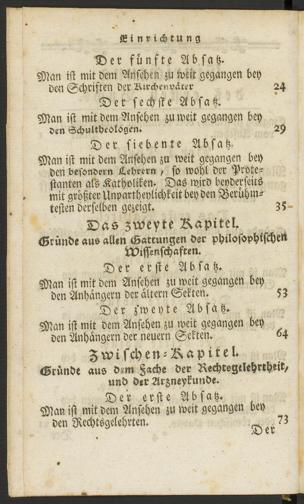 Einrichtung
Der fünfte Absatz.
Man ist mit dem Ansehen zu weit gegangen bey
den Schriften der Kirchenväter 24
Der sechste Absatz.
Man ist mit dem Ansehen zu weit gegangen bey
den Schultheologen. 29
Der siebente Absatz.
Man ist mit dem Ansehen zu weit gegangen bey
den besondern Lehrern, so wohl der Prote-
stanten als Katholiken. Das wird beyderseits
mit größter Unpartheylichkeit bey den Berühm-
testen derselben gezeigt. 35
Das zweyte Kapitel.
Gründe aus allen Gattungen der philosophischen
Wissenschaften.
Der erste Absatz.
Man ist mit dem Ansehen zu weit gegangen bey
den Anhängern der ältern Sekten. 53
Der zweyte Absatz.
Man ist mit dem Ansehen zu weit gegangen bey
den Anhängern der neuern Sekten. 64
Zwischen-Kapitel.
Gründe aus dem Fache der Rechtsgelehrtheit,
und der Arzneykunde.
Der erste Absatz.
Man ist mit dem Ansehen zu weit gegangen bey
den Rechtsgelehrten. 73
Der